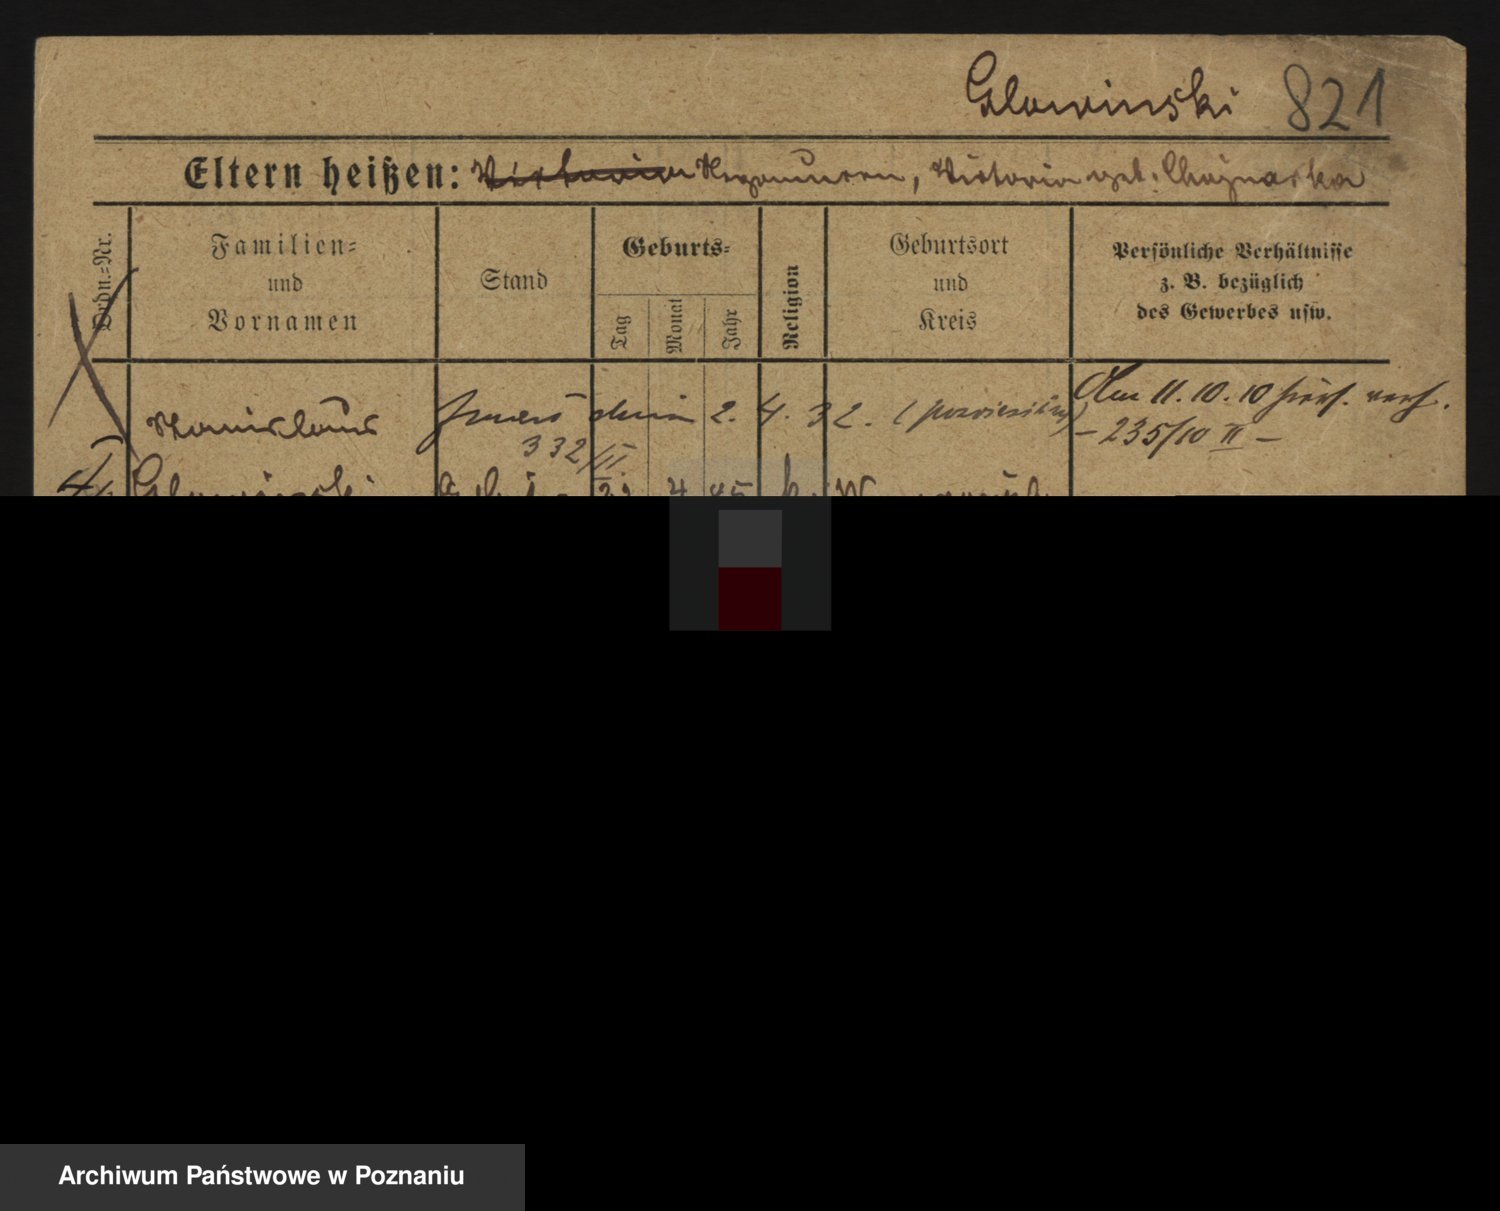 Glowinski 821
Eltern heißen: Victoria geb. Chojnacka
Ordn.-Nr.
Familien-
und
Vornamen
Stand
Geburts-
Tag
Monat
Jahr
Religion
Geburtsort
und
Kreis
Persönliche Verhältnisse
z. B. bezüglich
des Gewerbes usw.
Stanislaus zmarł dnia 2. 4. 32.
332/II.
Am 11. 10. 10 hier verh.
- 235/10 II -
Archiwum Państwowe w Poznaniu